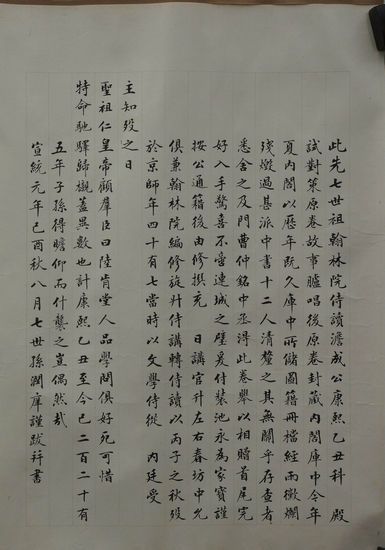 此先七世祖翰林院侍讀澹成公康熙乙丑科　殿
試對策原卷故事臚唱後原卷封藏內閣庫中今年
夏內閣以歷年既久庫中所儲圖籍冊檔經雨黴爛
殘燬過甚派中書十二人清釐之其無關乎存查者
悉舍之及門曹仲銘中丞淂此卷舉以相贈首尾完
好入手驚喜不啻連城之璧爰付裝池永為家寶謹
按公通籍後由修撰充　日講官升左右春坊中允
俱兼翰林院編修旋升侍講轉侍讀以丙子之秋歿
於京師年四十有七當時以文學侍從　內廷受
主知歿之日
聖祖仁皇帝顧羣臣曰陸肯堂人品學問俱好死可惜
特命馳驛歸櫬蓋異數也計康熙乙丑至今已二百二十有
五年子孫得瞻仰而什襲之豈偶然哉
宣統元年己酉秋八月七世孫潤庠謹跋并書